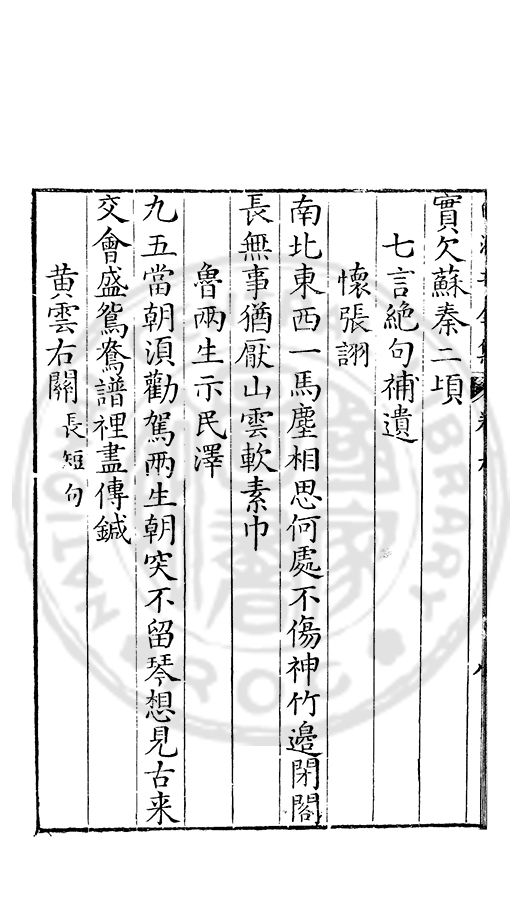 實欠蘇秦二頃
七言絕句補遺
懷張詡
南北東西一馬塵相思何處不傷神竹邉閉閣
長無事猶厭山雲軟素巾
魯兩生示民澤
九五當朝須勸駕兩生朝突不留琴想見古来
交會盛鴛鴦譜裡盡傳鍼
黃雲右關長短句